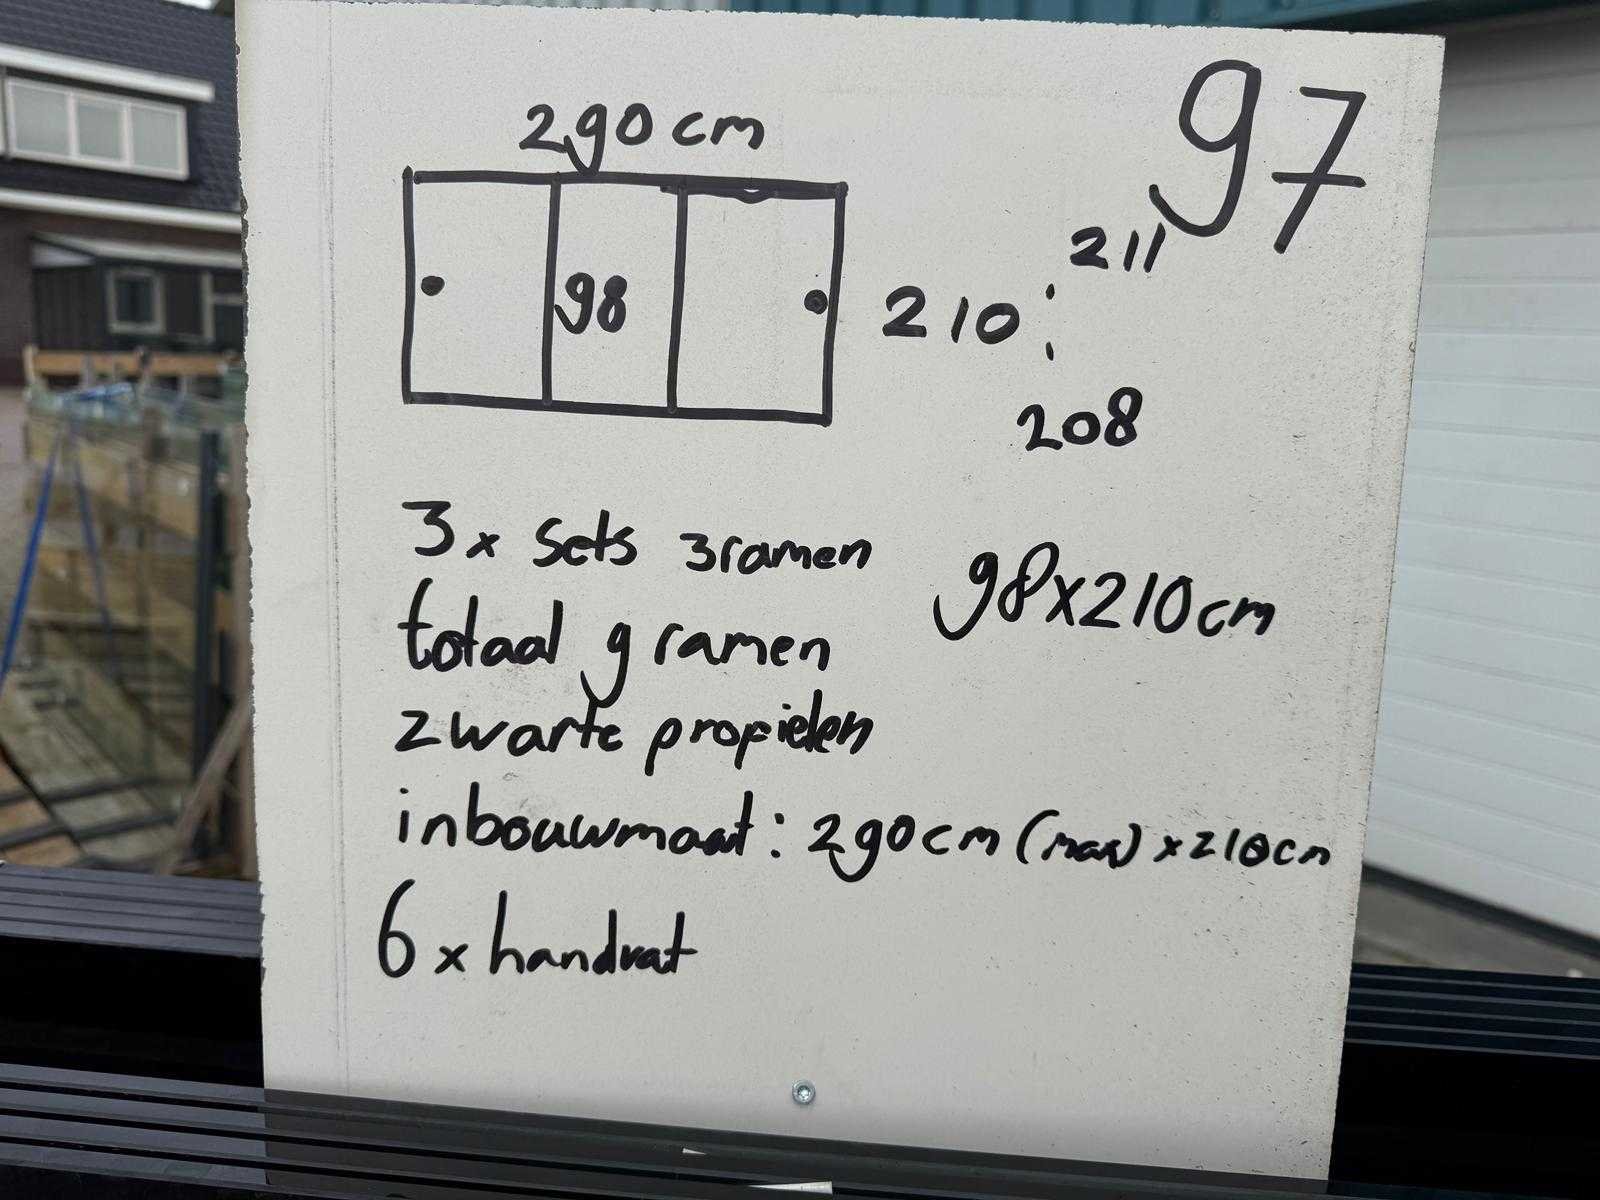 97
290 cm
98
210
211
208
3x sets 3 ramen
98x210cm
totaal 9 ramen
zwarte propielen
inbouwmaat: 290cm (max) x 210cm
6 x handvat